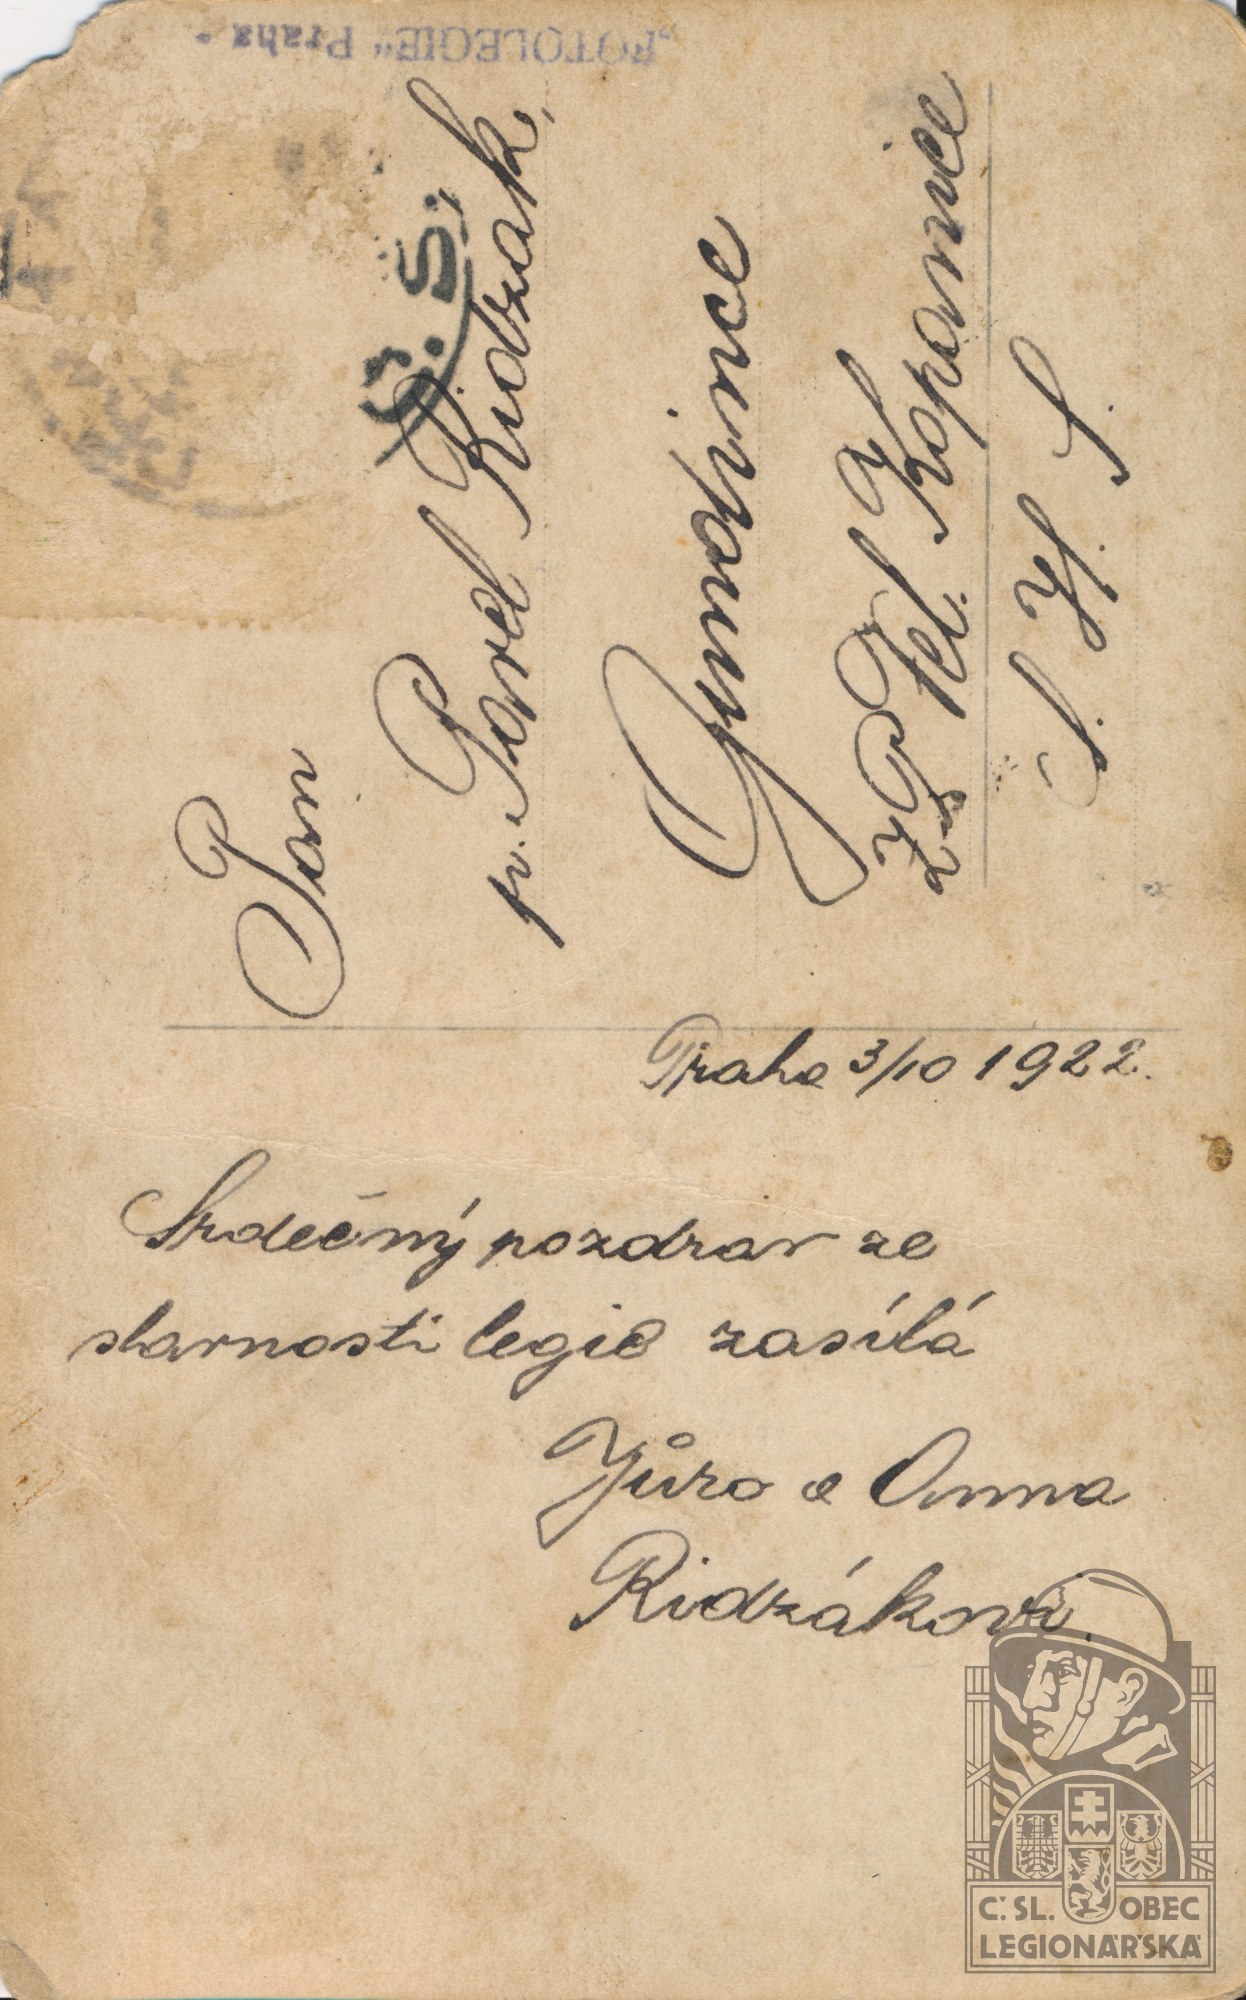 „FOTOLEGIE“ Praha
Č.S.
Pan
p. Pavel Ridzak,
Gundince
Vel Kopanice
S. H. S.
Praha 3/10 1922.
Srdečný pozdrav ze
slavnosti legie zasílá
Jůro a Anna
Ridzákovi.
Č. SL. OBEC
LEGIONÁŘSKÁ